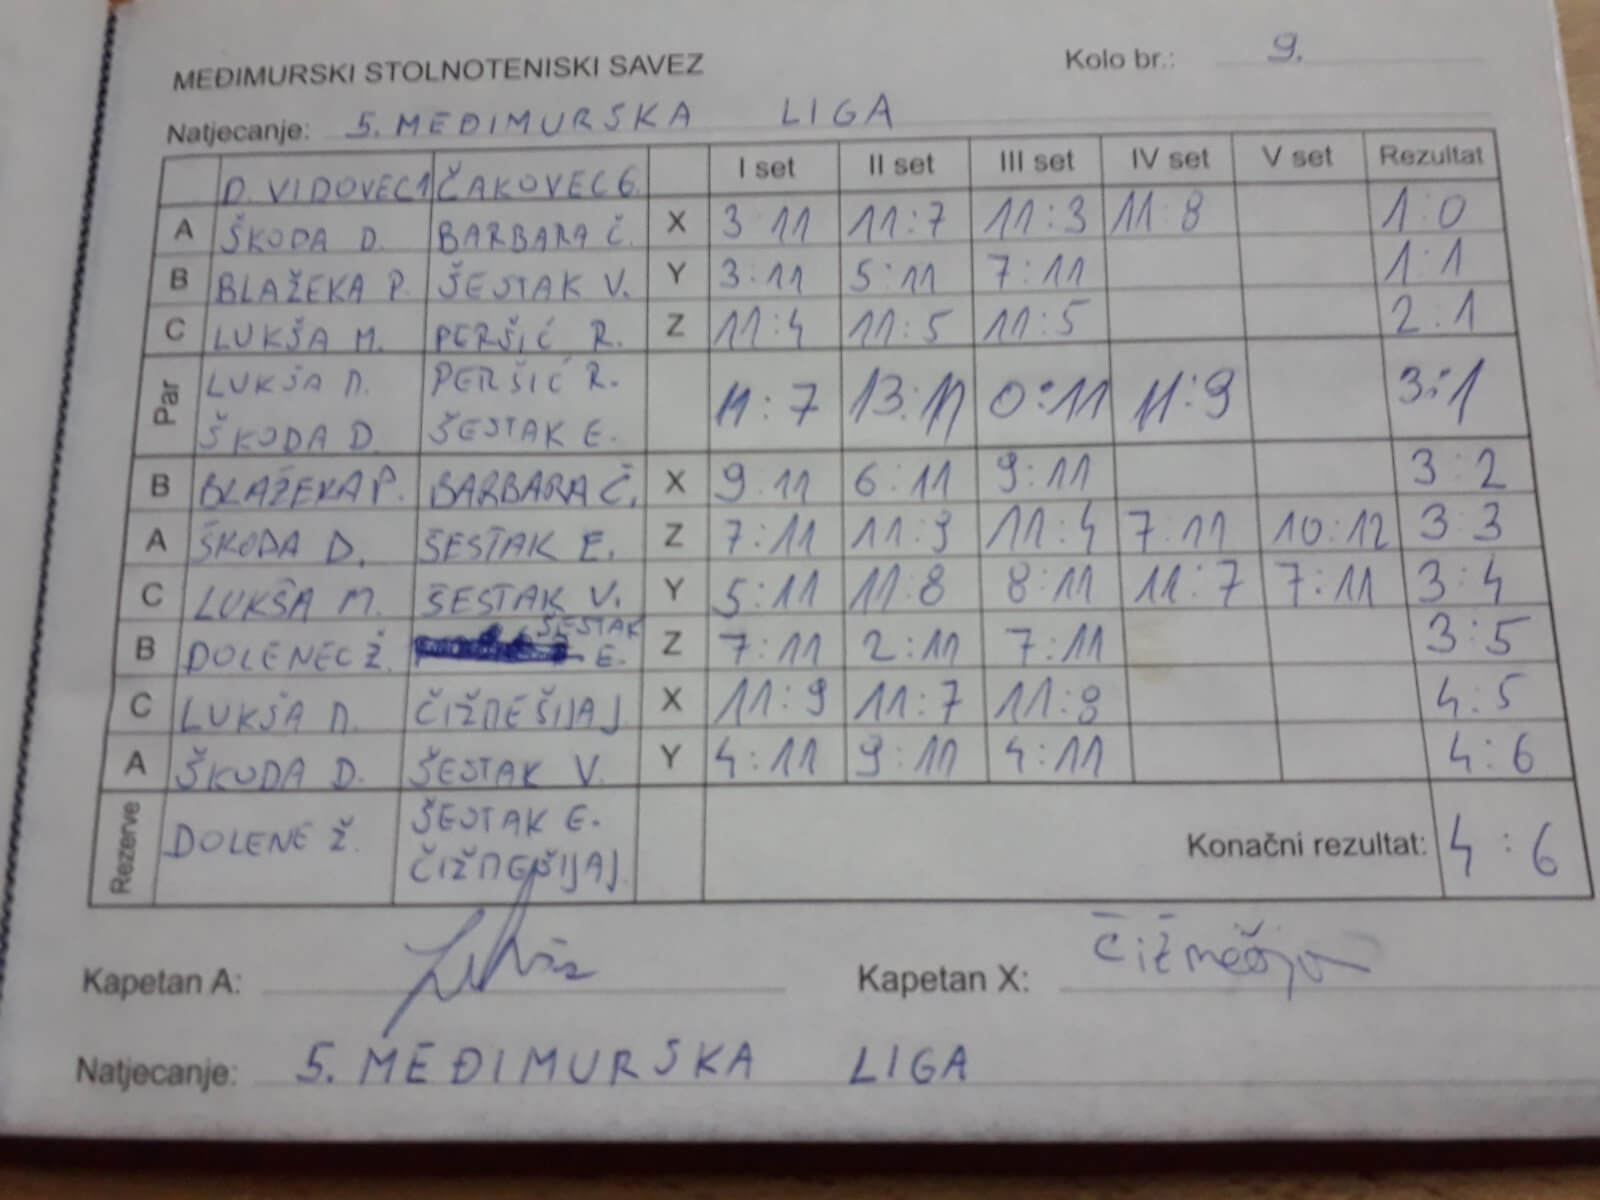 MEĐIMURSKI STOLNOTENISKI SAVEZ Kolo br.: 9.
Natjecanje: 5. MEĐIMURSKA LIGA
D. VIDOVEC 1 ČAKOVEC 6 I set II set III set IV set V set Rezultat
A ŠKODA D. BARBARA Č. X 3 11 11:7 11:3 11:8 1:0
B BLAŽEKA P. ŠESTAK V. Y 3:11 5:11 7:11 1:1
C LUKŠA M. PERŠIĆ R. Z 11:4 11:5 11:5 2:1
Par LUKŠA M. PERŠIĆ R. 11:7 13:11 0:11 11:9 3:1
ŠKODA D. ŠESTAK E.
B BLAŽEKA P. BARBARA Č. X 9:11 6:11 9:11 3:2
A ŠKODA D. ŠESTAK E. Z 7:11 11:9 11:4 7:11 10:12 3:3
C LUKŠA M. ŠESTAK V. Y 5:11 11:8 8:11 11:7 7:11 3:4
B DOLENEC Ž. ŠESTAK E. Z 7:11 2:11 7:11 3:5
C LUKŠA M. ČIŽMEŠIJA J X 11:9 11:7 11:8 4:5
A ŠKODA D. ŠESTAK V. Y 4:11 9:11 4:11 4:6
Rezerve DOLENE Ž. ŠESTAK E. Konačni rezultat: 4:6
ČIŽMEŠIJA J.
Kapetan A: Kapetan X:
Natjecanje: 5. MEĐIMURSKA LIGA